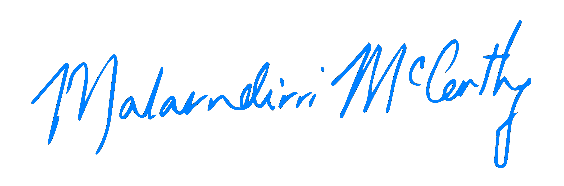 Malarndirri McCarthy